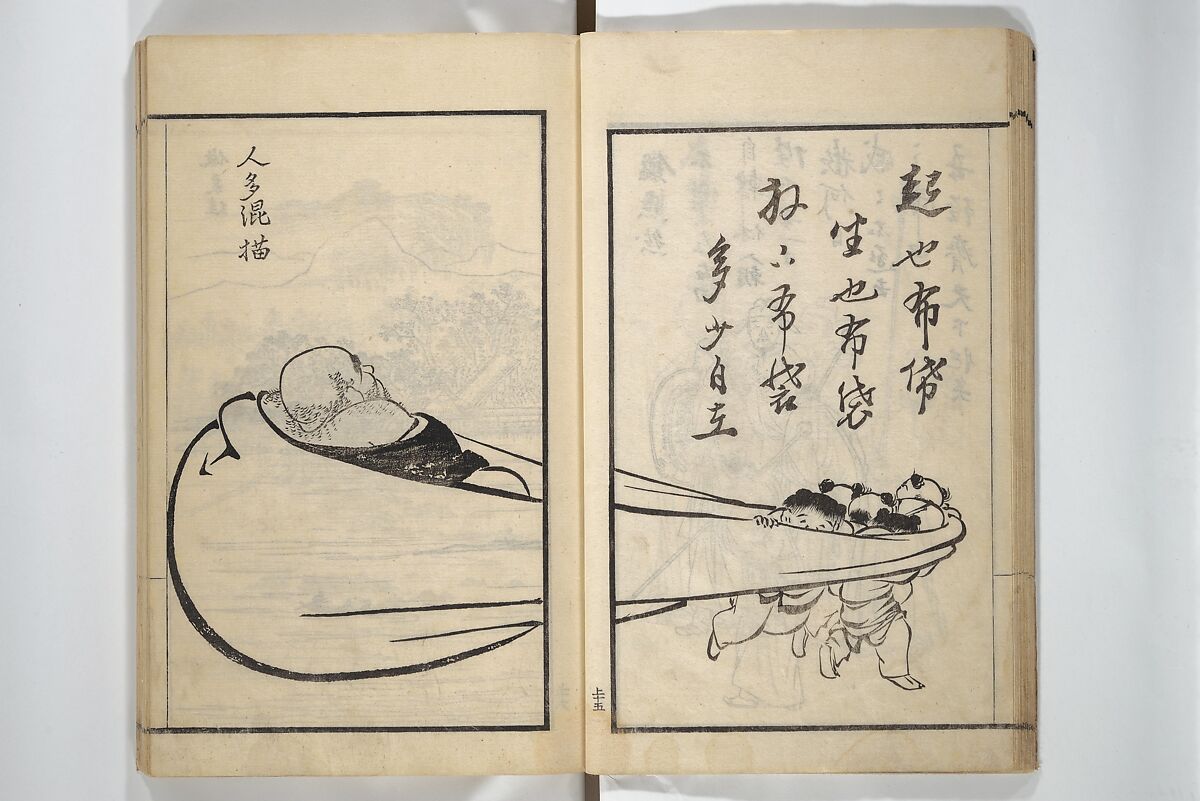 起也布袋
坐也布袋
放下布袋
多少自在
上十五
人多混描